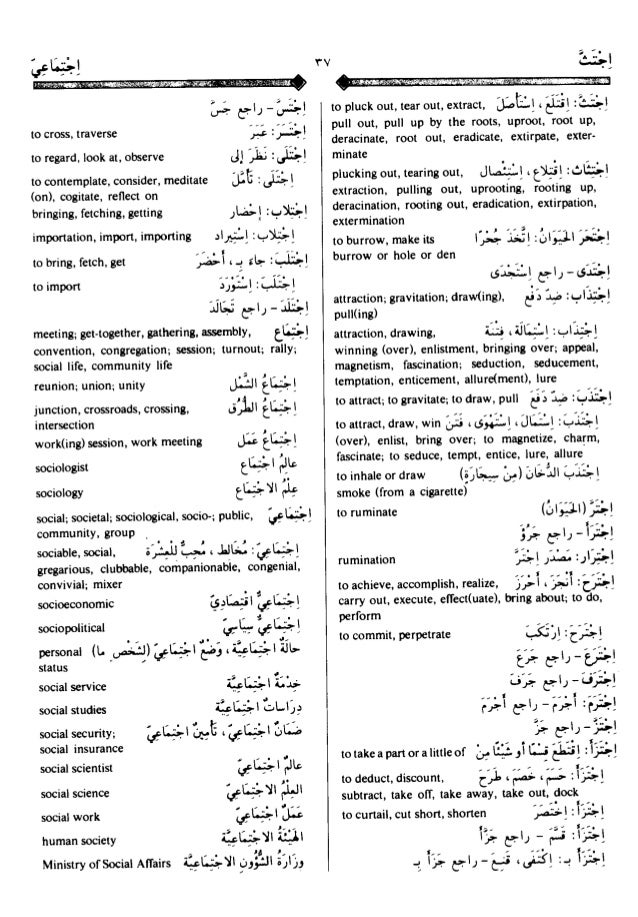 اِجْتَثَّ ٣٧ اِجْتِمَاعِيّ
اِجْتَثَّ: اِقْتَلَعَ، اِسْتَأْصَلَ to pluck out, tear out, extract,
pull out, pull up by the roots, uproot, root up,
deracinate, root out, eradicate, extirpate, exter-
minate
اِجْتِثَاث: اِقْتِلاع، اِسْتِئْصال plucking out, tearing out,
extraction, pulling out, uprooting, rooting up,
deracination, rooting out, eradication, extirpation,
extermination
اِجْتَحَرَ الحَيَوَانُ: اِتَّخَذَ جُحْرًا to burrow, make its
burrow or hole or den
اِجْتَدَى - راجع اِسْتَجْدَى
اِجْتِذَاب: ضِدّ دَفْع attraction; gravitation; draw(ing),
pull(ing)
اِجْتِذَاب: اِسْتِمَالَة، فِتْنَة attraction, drawing,
winning (over), enlistment, bringing over; appeal,
magnetism, fascination; seduction, seducement,
temptation, enticement, allure(ment), lure
اِجْتَذَبَ: ضِدّ دَفَعَ to attract; to gravitate; to draw, pull
اِجْتَذَبَ: اِسْتَمَالَ، اِسْتَهْوَى، فَتَنَ to attract, draw, win
(over), enlist, bring over; to magnetize, charm,
fascinate; to seduce, tempt, entice, lure, allure
اِجْتَذَبَ الدُّخَانَ (مِنْ سِيجَارَةٍ) to inhale or draw
smoke (from a cigarette)
اِجْتَرَّ (الحَيَوَانُ) to ruminate
اِجْتَرَأَ - راجع جَرُؤَ
اِجْتِرَار: مَصْدَر اِجْتَرَّ rumination
اِجْتَرَحَ: أَنْجَزَ، أَحْرَزَ to achieve, accomplish, realize,
carry out, execute, effect(uate), bring about; to do,
perform
اِجْتَرَحَ: اِرْتَكَبَ to commit, perpetrate
اِجْتَرَعَ - راجع جَرَعَ
اِجْتَرَفَ - راجع جَرَفَ
اِجْتَرَمَ: أَجْرَمَ - راجع أَجْرَمَ
اِجْتَزَّ - راجع جَزَّ
اِجْتَزَأَ: اِقْتَطَعَ قِسْمًا أو شَيْئًا مِنْ to take a part or a little of
اِجْتَزَأَ: حَسَمَ، خَصَمَ، طَرَحَ to deduct, discount,
subtract, take off, take away, take out, dock
اِجْتَزَأَ: اِخْتَصَرَ to curtail, cut short, shorten
اِجْتَزَأَ: قَسَّمَ - راجع جَزَّأَ
اِجْتَزَأَ بـ: اِكْتَفَى، قَنِعَ - راجع جَزَأَ بـ
اِجْتَسَّ - راجع جَسَّ
اِجْتَسَرَ: عَبَرَ to cross, traverse
اِجْتَلَى: نَظَرَ إلى to regard, look at, observe
اِجْتَلَى: تَأَمَّلَ to contemplate, consider, meditate
(on), cogitate, reflect on
اِجْتِلاب: إحْضار bringing, fetching, getting
اِجْتِلاب: اِسْتِيْراد importation, import, importing
اِجْتَلَبَ: جاءَ بـِ، أحْضَرَ to bring, fetch, get
اِجْتَلَبَ: اِسْتَوْرَدَ to import
اِجْتَلَدَ - راجع تَجَالَدَ
اِجْتِمَاع meeting; get-together, gathering, assembly,
convention, congregation; session; turnout; rally;
social life, community life
اِجْتِمَاعُ الشَّمْل reunion; union; unity
اِجْتِمَاعُ الطُّرُق junction, crossroads, crossing,
intersection
اِجْتِمَاعُ عَمَل work(ing) session, work meeting
عَالِمُ اجْتِمَاع sociologist
عِلْمُ الاجْتِمَاع sociology
اِجْتِمَاعِيّ social; societal; sociological, socio-; public,
community, group
اِجْتِمَاعِيّ: مُخَالِط، مُحِبٌّ لِلْعِشْرَة sociable, social,
gregarious, clubbable, companionable, congenial,
convivial; mixer
اِجْتِمَاعِيٌّ اقْتِصَادِيّ socioeconomic
اِجْتِمَاعِيٌّ سِيَاسِيّ sociopolitical
حَالَةٌ اجْتِمَاعِيَّة، وَضْعٌ اجْتِمَاعِيّ (لِشَخْصٍ ما) personal
status
خِدْمَةٌ اجْتِمَاعِيَّة social service
دِرَاسَاتٌ اجْتِمَاعِيَّة social studies
ضَمَانٌ اجْتِمَاعِيّ، تَأمِينٌ اجْتِمَاعِيّ social security;
social insurance
عَالِمٌ اجْتِمَاعِيّ social scientist
العِلْمُ الاجْتِمَاعِيّ social science
عَمَلٌ اجْتِمَاعِيّ social work
الهَيْئَةُ الاجْتِمَاعِيَّة human society
وِزَارَةُ الشُّؤُونِ الاجْتِمَاعِيَّة Ministry of Social Affairs